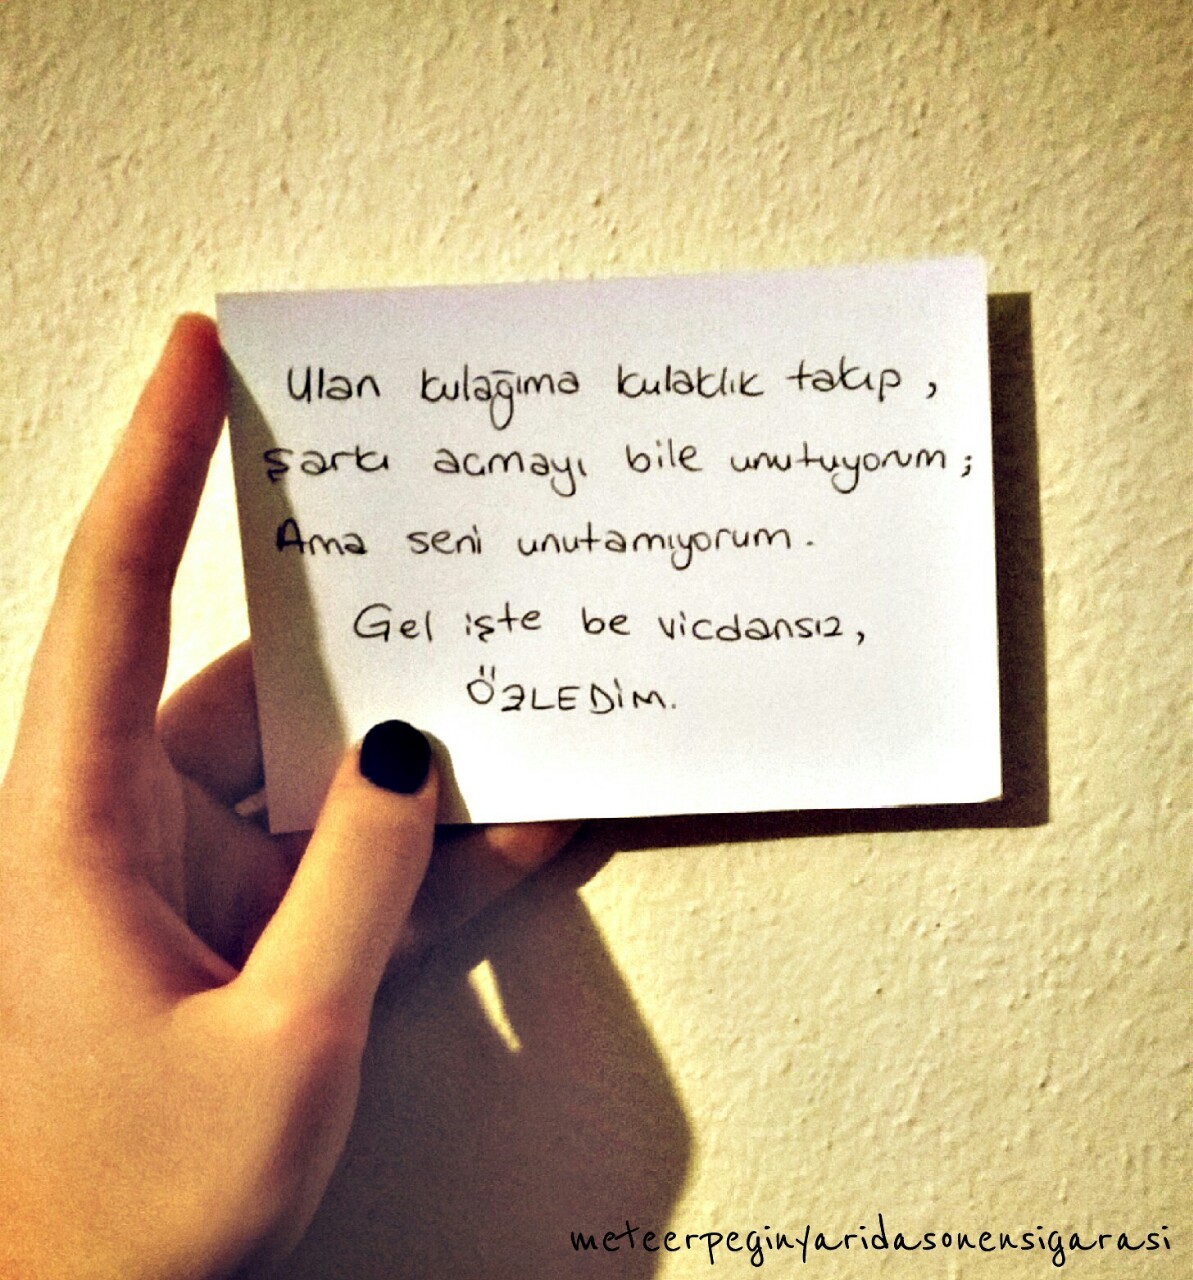 Ulan kulağıma kulaklık takıp,
şarkı acmayı bile unutuyorum;
Ama seni unutamıyorum.
Gel işte be vicdansız,
ÖZLEDİM.
meteerpeginyaridasonensigarasi